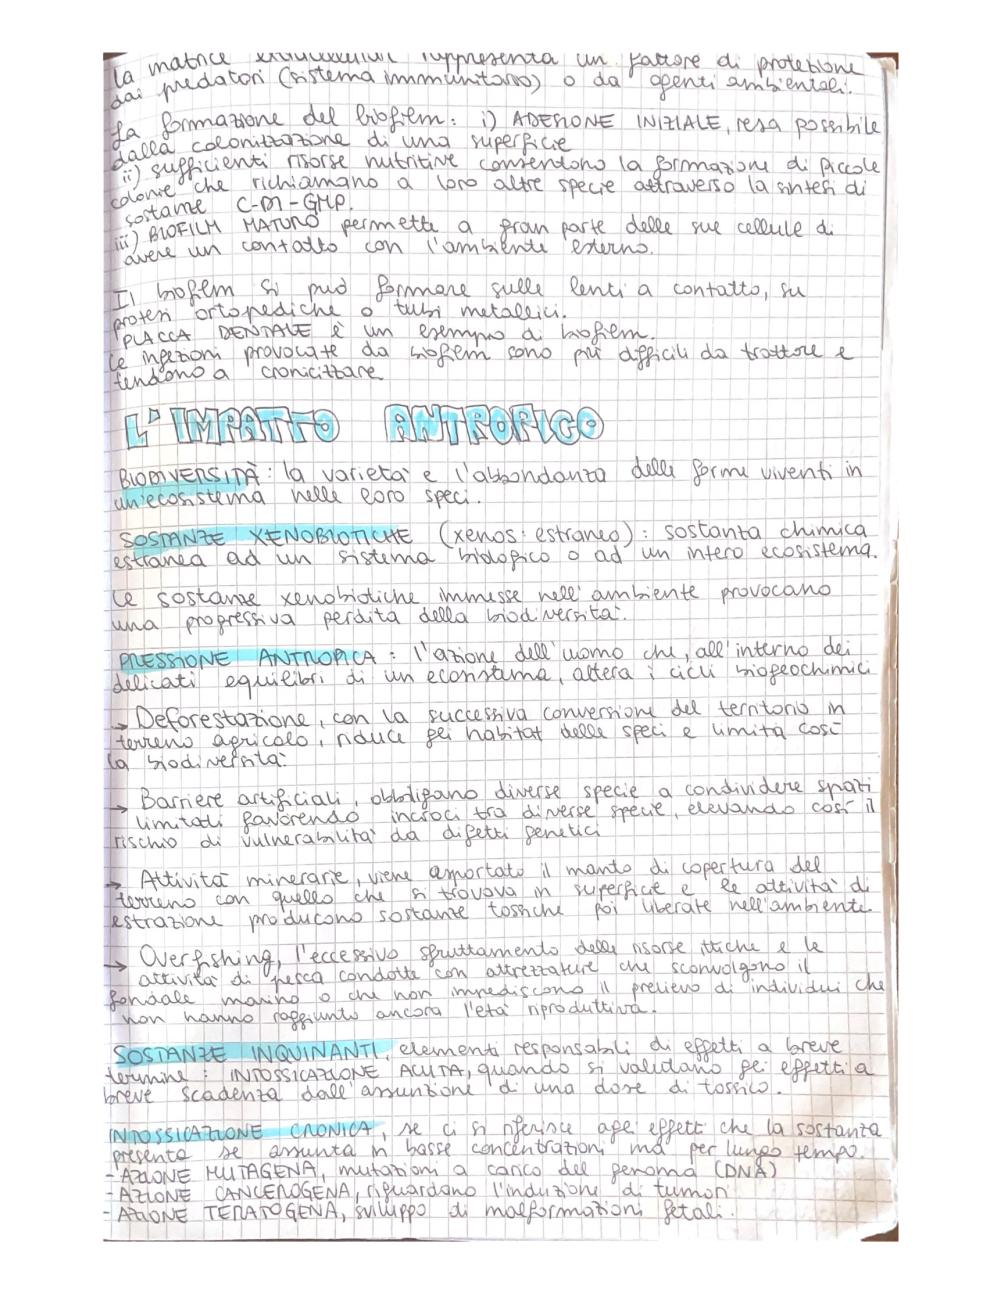 la matrice extracellular rappresenta un fattore di protezione
dai predatori (sistema immunitario) o da agenti ambientali.
La formazione del biofilm: i) ADESIONE INIZIALE, resa possibile
dalla colonizzazione di una superficie
ii) sufficienti risorse nutritive consendono la formazione di piccole
colonie che richiamano a loro altre specie attraverso la sintesi di
sostanze C-DI-GMP.
iii) BIOFILM MATURO permette a gran parte delle sue cellule di
avere un contatto con l'ambiente esterno.
Il biofilm si può formare sulle lenti a contatto, su
protesi ortopediche o tubi metallici.
PLACCA DENTALE è un esempio di biofilm.
Le infezioni provocate da biofilm sono più difficili da trattare e
tendono a cronicizzare
L'IMPATTO ANTROPICO
BIODIVERSITÀ: la varietà e l'abbondanza delle forme viventi in
un'ecosistema nelle loro speci.
SOSTANZE XENOBIOTICHE (xenos: estraneo): sostanza chimica
estranea ad un sistema biologico o ad un intero ecosistema.
Le sostanze xenobiotiche immesse nell'ambiente provocano
una progressiva perdita della biodiversità.
PRESSIONE ANTROPICA: l'azione dell'uomo che, all'interno dei
delicati equilibri di un ecosistema, altera i cicli biogeochimici
→ Deforestazione, con la successiva conversione del territorio in
terreno agricolo, riduce gli habitat delle speci e limita così
la biodiversità.
→ Barriere artificiali, obbligano diverse specie a condividere spazi
limitati favorendo incroci tra diverse specie, elevando così il
rischio di vulnerabilità da difetti genetici
→ Attività minerarie, viene asportato il manto di copertura del
terreno con quello che si trovava in superficie e le attività di
estrazione producono sostanze tossiche poi liberate nell'ambiente.
→ Overfishing, l'eccessivo sfruttamento delle risorse ittiche e le
attività di pesca condotte con attrezzature che sconvolgono il
fondale marino o che non impediscono il prelievo di individui che
non hanno raggiunto ancora l'età riproduttiva.
SOSTANZE INQUINANTI, elementi responsabili di effetti a breve
termine: INTOSSICAZIONE ACUTA, quando si validano gli effetti a
breve scadenza dall'assunzione di una dose di tossico.
INTOSSICAZIONE CRONICA, se ci si riferisce agli effetti che la sostanza
presenta se assunta in basse concentrazioni ma per lungo tempo.
- AZIONE MUTAGENA, mutazioni a carico del genoma (DNA)
- AZIONE CANCEROGENA, riguardano l'induzione di tumori
- AZIONE TERATOGENA, sviluppo di malformazioni fetali.